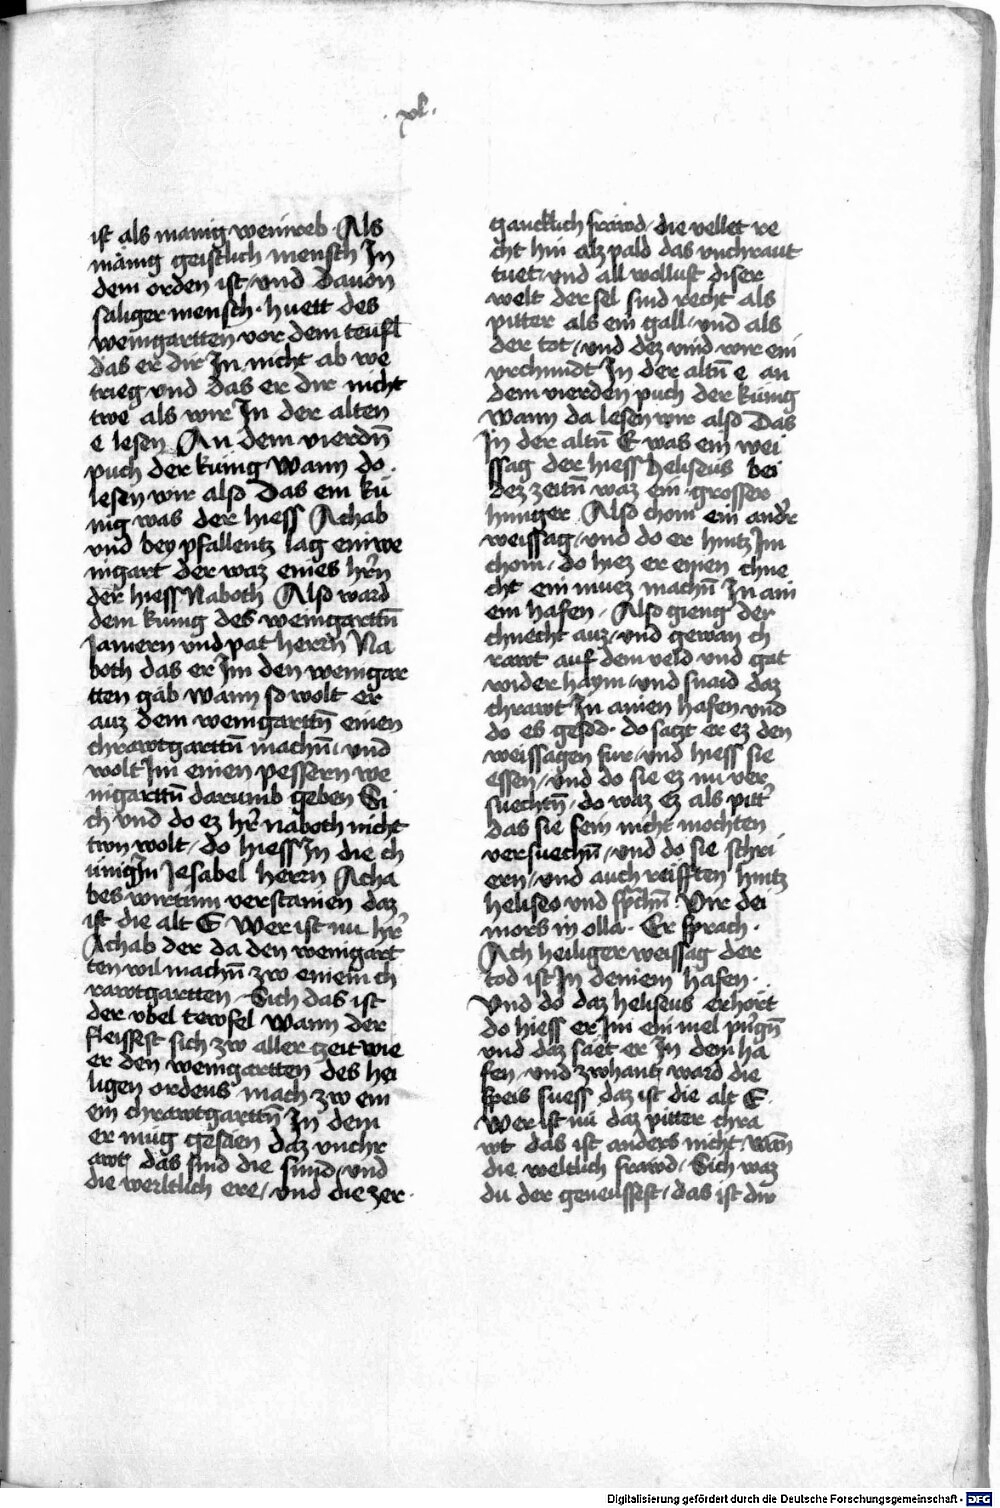 .xl.
ist als manig weinreb Als
mänig geistlich mensch In
dem orden ist / vnd dauon
saliger mensch · huett des
weingartten vor dem teufl
das er dir In nicht ab we
trieg vnd das er dir nicht
twe als wir In der alten
e lesen An dem vierdn̄
puch der kunig wann do .
lesen wir also Das ein kü
nig was der hiess Achab
vnd bey pfallentz lag ein we
nigart der waz eines hr̄n
der hiess Naboth Also ward
dem kunig des weingarttn̄
Jamern vnd pat herrn Na
both das er Im den weingar
tten gäb wann so wolt er
auz dem weingarttn̄ einen
chrawtgarttn̄ machn̄ / vnd
wolt Im einen pessern we
nigarttn̄ darumb geben Si
ch vnd do ez hr̄ naboth nicht
twn wolt / do hiess In die ch
ünigin Jesabel herrn Acha
bes wirtinn verstainen daz
ist die alt E Wer ist nu hr̄
Achab der da den weingart
ten wil machn̄ zw einem ch
rawtgartten Sich das ist
der vbel tewfel wann der
fleissest sich zw aller tzeit wie
er den weingartten des hei
ligen ordens mach zw ein
ein chrawtgarttn̄ In dem
er müg gesäen daz vnchr
awt das sind die sünd / vnd
die werltlich ere / vnd die zer
tzancklich frawd / die vellet re
cht hin alz pald das vnchraut
tuet / vnd all wollust diser
welt der sel sind recht als
pitter als ein gall / vnd als
der tot / vnd dez vind wir ein
vrchundt In der altn̄ e an
dem vierden puch der künig
Wann da lesen wir also Das
In der altn̄ E was ein wei
ssag der hiess heliseus bei
dez zeitn̄ waz ein grosser
hunger Also chom ein andr̄
weissag / vnd do er hintz Im
chom / do hiez er einen chne
cht ein muez machn̄ In ain
em hafen / Also gieng der
chnecht auz / vnd gewan ch
rawt auf dem veld vnd gat
wider haym / vnd snaid daz
chrawt In ainen hafen vnd
do es gesod · do satzt er ez den
weissagen fur / vnd hiess sie
essen / vnd do sie ez nu ver
suechtn̄ / do waz ez als pitt̄
das sie sein nicht mochten
versuechn̄ / vnd do sie schri
ern / vnd auch reifften hintz
heliseo vnd sprachn̄ Vir dei
mors in olla · Er sprach ·
Ach heiliger weissag der
tod ist In deinem hafen ·
Vnd do daz heliseus erhört
do hiess er Im ein mel pringn̄
vnd daz säet er In dem ha
fen / vnd zwhantz ward die
speis suess daz ist die alt E ·
Wer ist nü daz pitter chra
wt das ist anders nicht wan̄
die weltlich frawd / Sich waz
du der geneussest / das ist dir
Digitalisierung gefördert durch die Deutsche Forschungsgemeinschaft - DFG